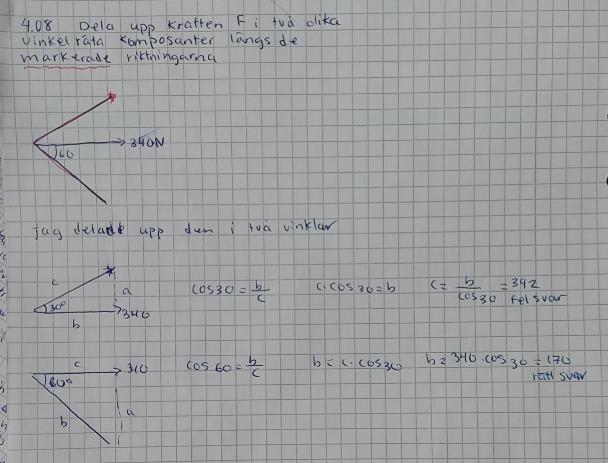 4.08 Dela upp kraften F i två olika
vinkelräta komposanter längs de
markerade riktningarna
340N
60
jag delade upp den i två vinklar
c
a
30°
b
340
cos30 = b/c
c·cos30 = b
c = b/cos30 = 392
fel svar
c
340
60°
a
b
cos60 = b/c
b = c·cos30
b = 340·cos30 = 170
rätt svar